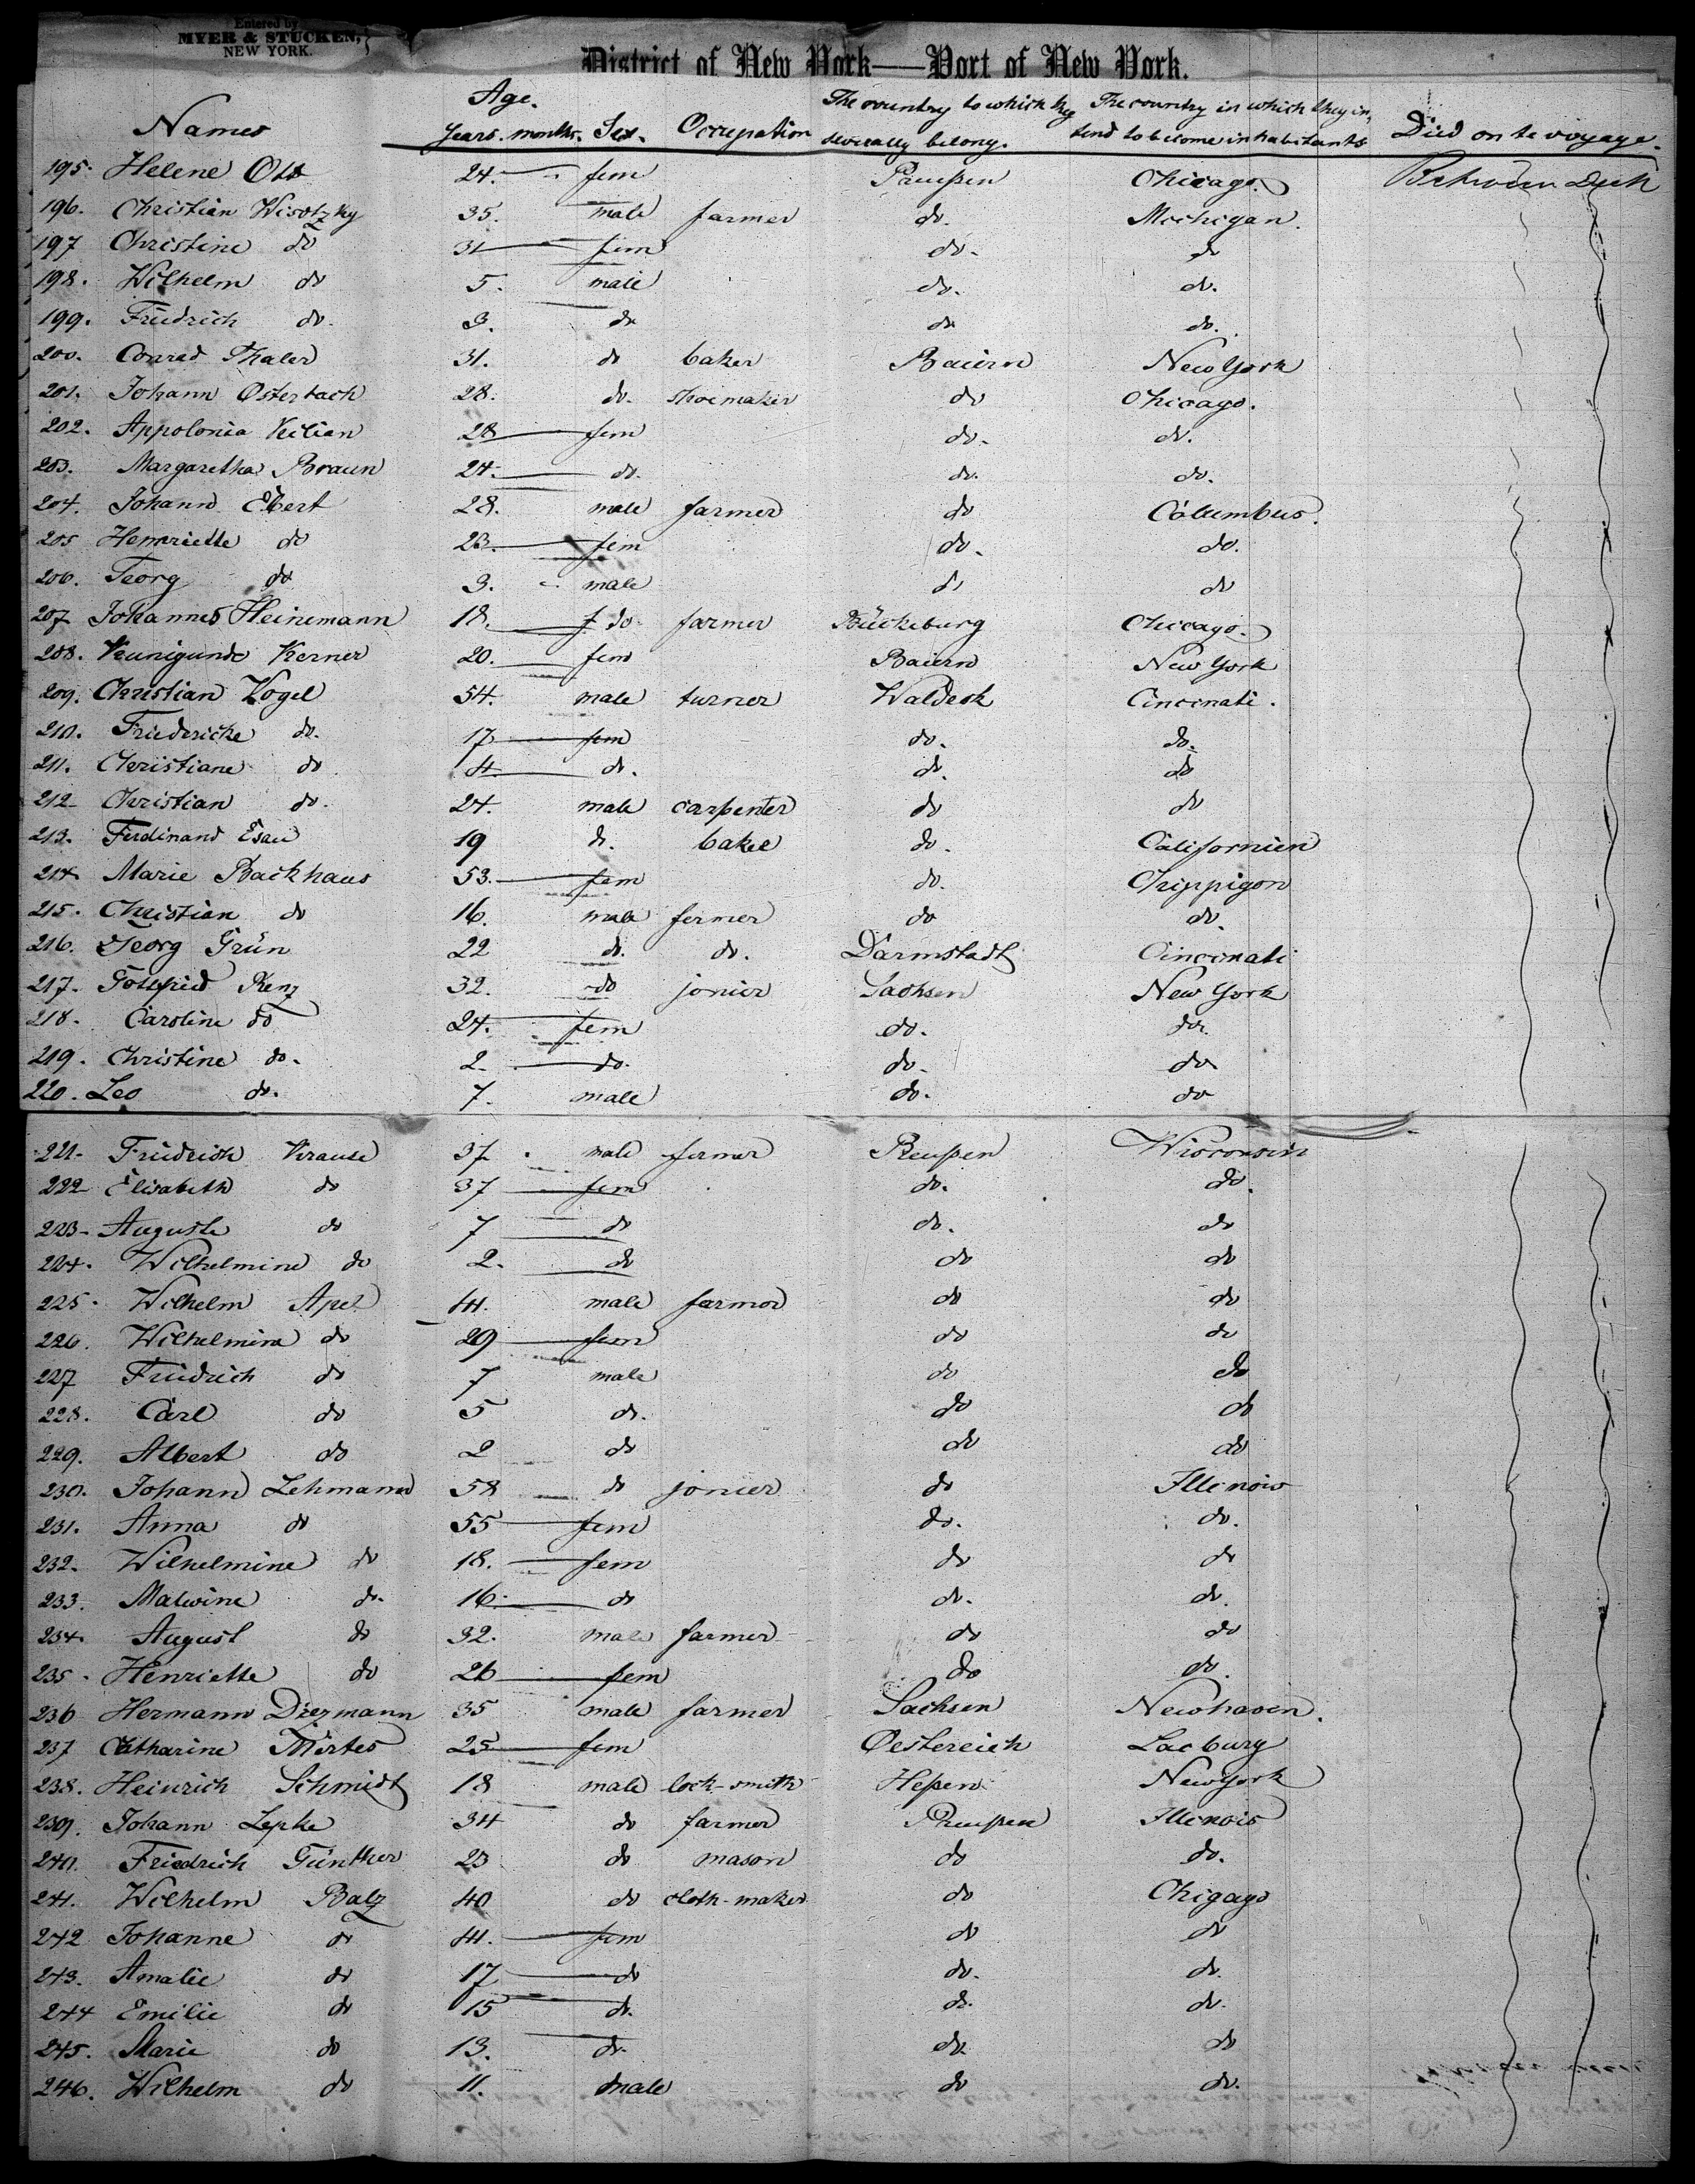 Entered by
MYER & STUCKEN,
NEW YORK.
District of New York—Port of New York.
Age. The country to which they The country in which they in,
Names Years. months. Sex. Occupation severally belong. tend to become inhabitants Died on te voyage.
195. Helene Otto 24. fem Preußen Chicago. Between Deck
196. Christian Wisotzky 35. male farmer do. Michigan.
197 Christine do 31 fem do. do
198. Wilhelm do 5. male do. do.
199. Friedrich do. 3. do do do.
200. Conrad Thaler 31. do baker Baiern New York
201. Johann Osterbach 28. do. shoemaker do Chicago.
202. Appolonia Kilian 28 fem do. do.
203. Margaretha Braun 24. do. do. do.
204. Johann Ebert 28. male farmer do Columbus.
205 Hennriette do 23. fem do. do.
206. Georg do 3. male do do
207 Johannes Heinemann 18. do farmer Bückeburg Chicago.
208. Kunigunde Kerner 20. fem Baiern New York
209. Christian Vogel 54. male turner Waldeck Cincinati.
210. Friedericke do. 17 fem do. do.
211. Christiane do 4 do. do. do
212 Christian do. 24. male carpenter do do
213. Ferdinand Esau 19 do. baker do. Californien
214 Marie Backhaus 53. fem do. Chippigon
215. Christian do 16. male fermer do do.
216. Georg Grün 22 do. do. Darmstadt Cincinati
217. Gottfried Renz 32. do jonier Sachsen New York
218. Caroline do 24. fem do. do.
219. Christine do. 2. do. do. do
220. Leo do. 7. male do. do
221. Friedrich Krause 37 male fermer Preußen Wisconsin
222 Elisabeth do 37 fem do. do.
223 Auguste do 7 do do. do
224. Wilhelmine do 2. do do do
225. Wilhelm Apel 44. male farmer do do
226. Wilhelmine do 29 fem do do
227 Friedrich do 7 male do do
228. Carl do 5 do. do do
229. Albert do 2 do do do
230. Johann Lehmann 58 do jonier do Illenois
231. Anna do 55 fem do. do.
232. Wilhelmine do 18. fem do do
233. Malwine do. 16. do do. do.
234. August do 32. male farmer do do
235. Henriette do 26 fem do do.
236 Hermann Diezmann 35 male farmer Sachsen Newhaven.
237 Catharine 25 fem Oestereich Lacbury
238. Heinrich Schmidt 18 male lock-smith Heßen New York
239. Johann Lepke 34 do farmer Preußen Illenois
240. Friedrich Günther 23 do mason do do.
241. Wilhelm Balz 40 do cloth-maker do Chigago
242 Johanne do 44. fem do do
243. Amalie do 17 do do. do.
244 Emilie do 15 do. do. do.
245. Marie do 13. do. do. do
246. Wilhelm do 11. male do do.